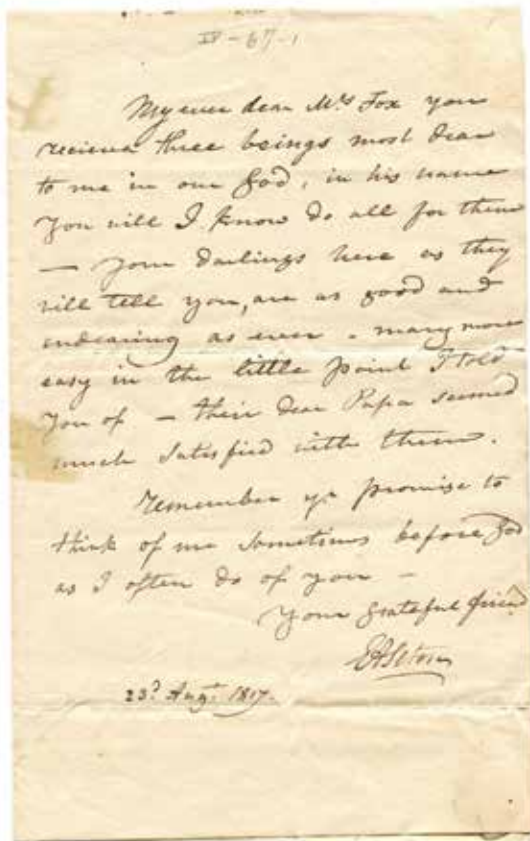 IV-67-1
My ever dear Mrs Fox you
recieve three beings most dear
to me in our God, in his name
you will I know do all for them
— your darlings here as they
will tell you, are as good and
endearing as ever - mary more
easy in the little point I told
you of — their dear Papa seemed
much satisfied with them.
remember yr promise to
think of me sometimes before God
as I often do of you —
your grateful friend
EASeton
23d Augt 1817.